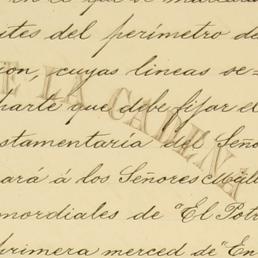 en el que se
ites del perímetro de
ion, cuyas lineas se=
parte que debe fijar el
stamentaría del Seño
ará á los Señores Mull
mordiales de "El Potr
primera merced de "En
DE LA CADENA